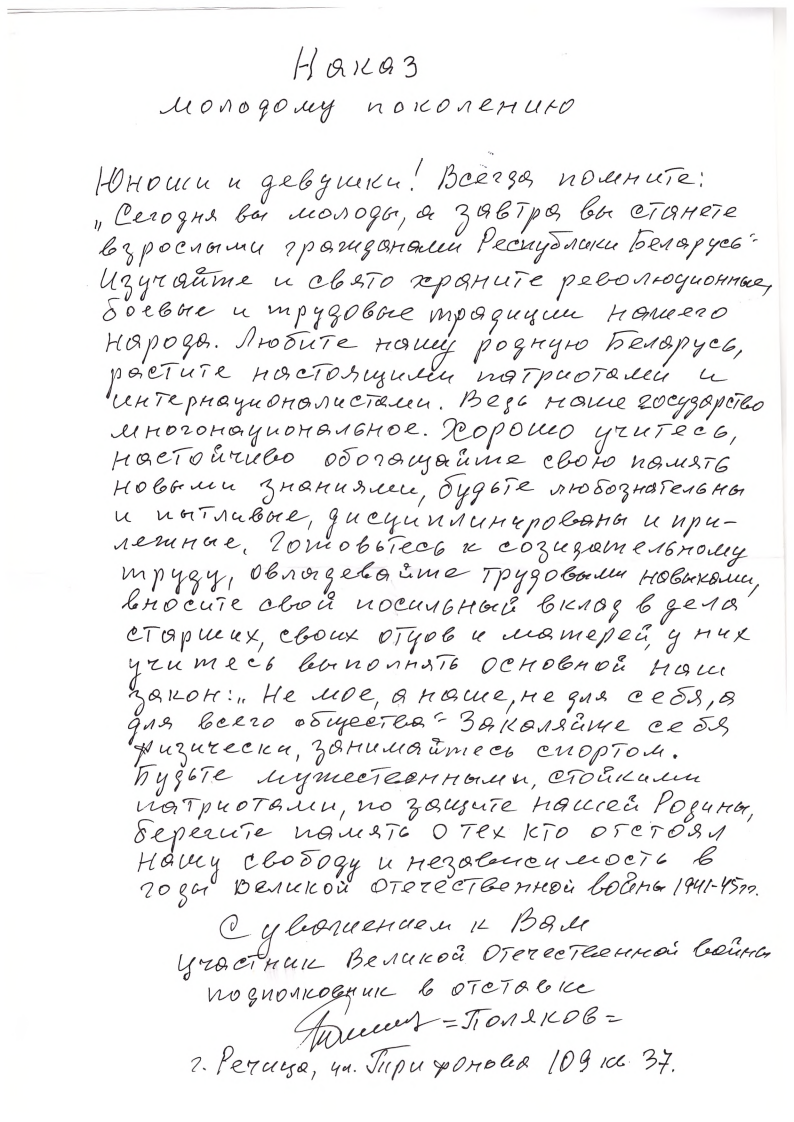 Наказ
молодому поколению
Юноши и девушки! Всегда помните:
„Сегодня вы молоды, а завтра вы станете
взрослыми гражданами Республики Беларусь“
Изучайте и свято храните революционные,
боевые и трудовые традиции нашего
народа. Любите нашу родную Беларусь,
растите настоящими патриотами и
интернационалистами. Ведь наше государство
многонациональное. Хорошо учитесь,
настойчиво обогащайте свою память
новыми знаниями, будьте любознательны
и пытливые, дисциплинированы и при-
лежные. Готовьтесь к созидательному
труду, овладевайте трудовыми навыками,
вносите свой посильный вклад в дела
старших, своих отцов и матерей, у них
учитесь выполнять основной наш
закон: „Не мое, а наше, не для себя, а
для всего общества“ Закаляйте себя
физически, занимайтесь спортом.
Будьте мужественными, стойкими
патриотами, по защите нашей Родины,
берегите память о тех кто отстоял
нашу свободу и независимость в
годы Великой Отечественной войны 1941-45гг.
С уважением к Вам
участник Великой Отечественной войны
подполковник в отставке
=Поляков=
г. Речица, ул. Трифонова 109 кв 37.